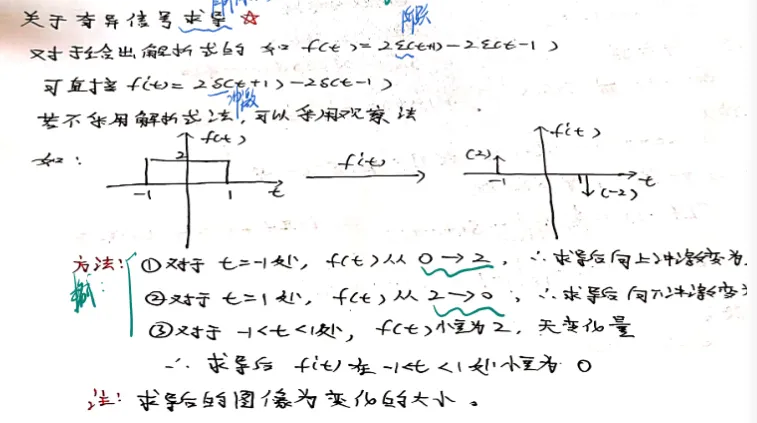 关于奇异信号求导 ☆
阶跃
对于给出解析式的 如 f(t)=2ε(t+1)-2ε(t-1)
可直接 f'(t)=2δ(t+1)-2δ(t-1)
冲激
若不采用解析式法,可以采用观察法
如:
f(t)
2
-1
1
t
f'(t)
f'(t)
(2)
-1
(-2)
t
方法:
①对于 t=-1处, f(t)从 0→2, ∴求导后向上冲激变为
②对于 t=1处, f(t)从 2→0, ∴求导后向下冲激变为
③对于 -1<t<1处, f(t)恒为2, 无变化量
∴ 求导后 f'(t)在 -1<t<1处恒为 0
注: 求导后的图像为变化的大小。